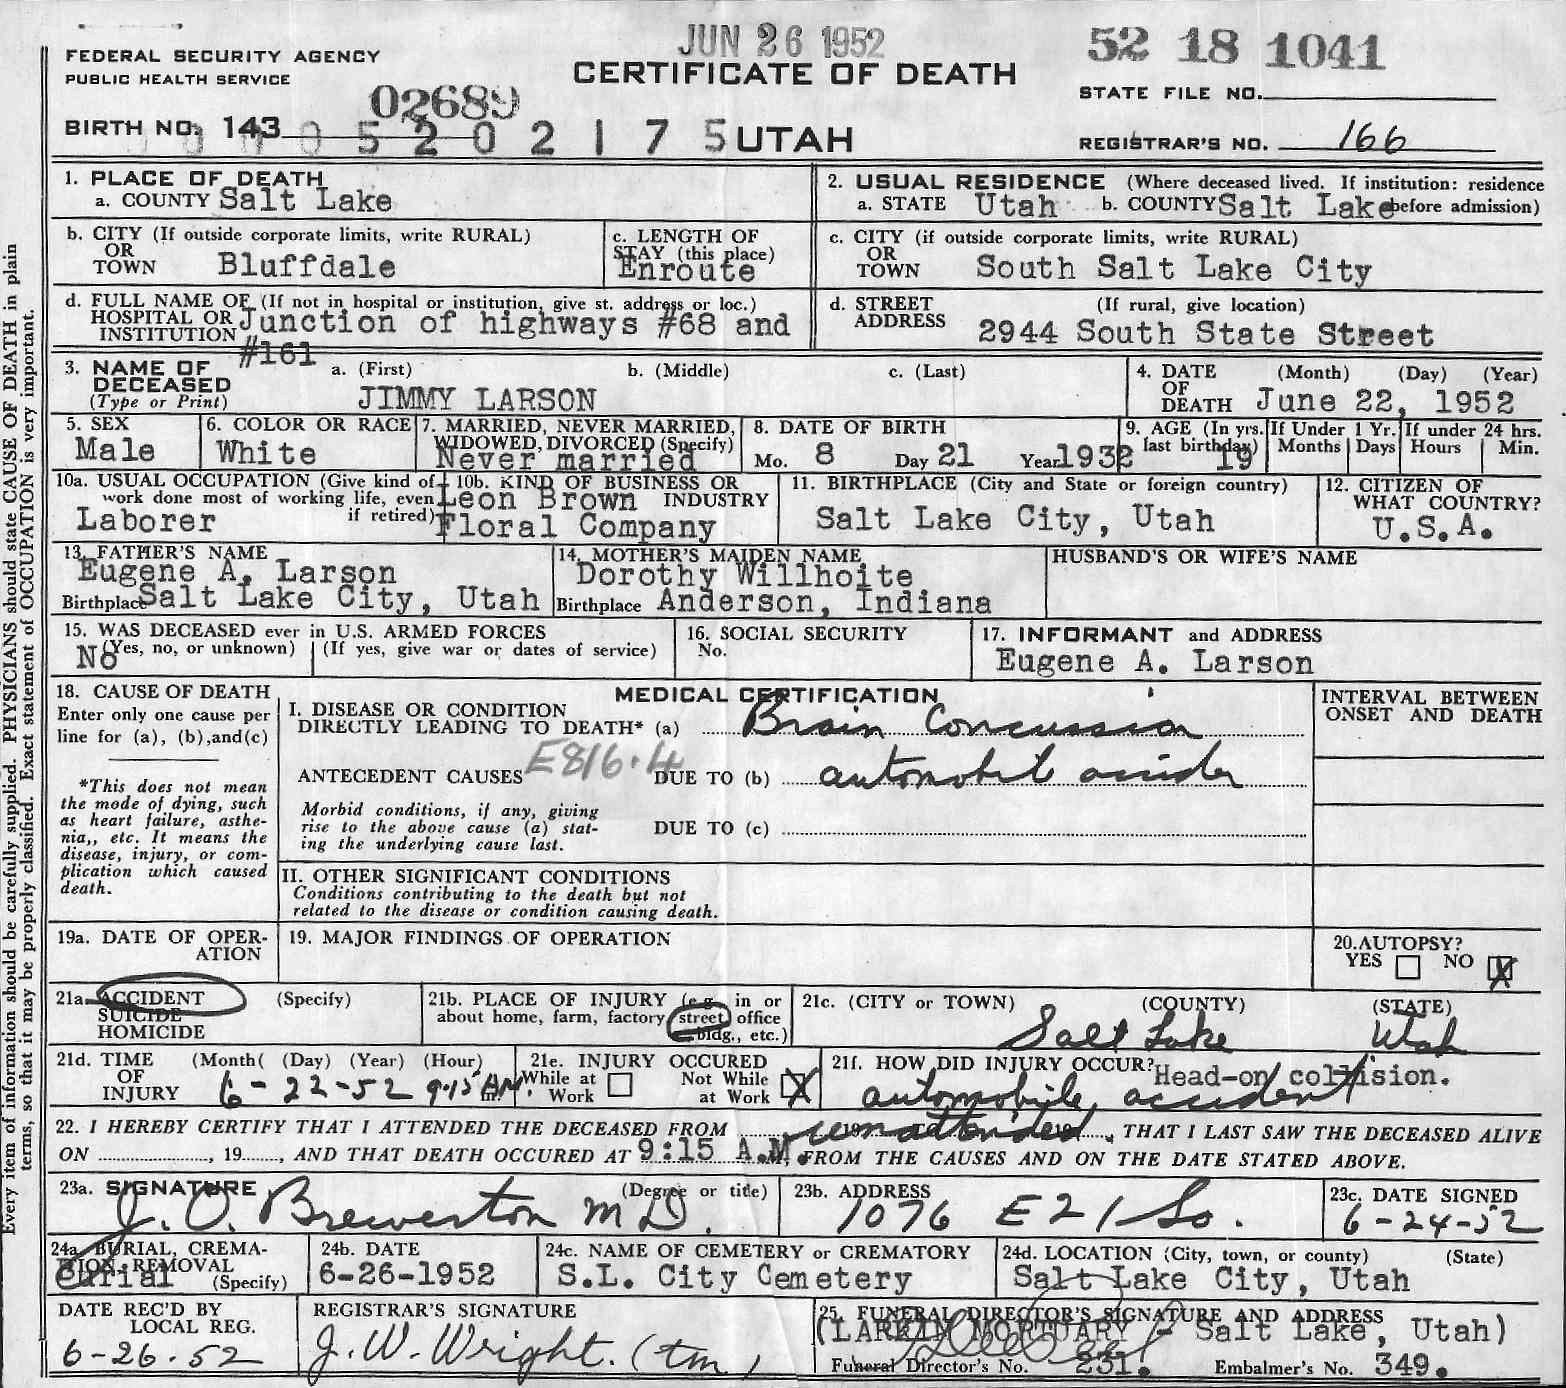 JUN 26 1952
52 18 1041
FEDERAL SECURITY AGENCY
PUBLIC HEALTH SERVICE
CERTIFICATE OF DEATH
STATE FILE NO.
02689
BIRTH NO. 143
0 5 2 0 2 1 7 5 UTAH
REGISTRAR'S NO. 166
1. PLACE OF DEATH
a. COUNTY Salt Lake
2. USUAL RESIDENCE (Where deceased lived. If institution: residence
a. STATE Utah b. COUNTY Salt Lake before admission)
b. CITY (If outside corporate limits, write RURAL)
OR
TOWN Bluffdale
c. LENGTH OF
STAY (this place)
Enroute
c. CITY (if outside corporate limits, write RURAL)
OR
TOWN South Salt Lake City
d. FULL NAME OF (If not in hospital or institution, give st. address or loc.)
HOSPITAL OR
INSTITUTION Junction of highways #68 and
#161
d. STREET (If rural, give location)
ADDRESS 2944 South State Street
3. NAME OF a. (First) b. (Middle) c. (Last)
DECEASED
(Type or Print) JIMMY LARSON
4. DATE (Month) (Day) (Year)
OF
DEATH June 22, 1952
5. SEX
Male
6. COLOR OR RACE
White
7. MARRIED, NEVER MARRIED,
WIDOWED, DIVORCED (Specify)
Never married
8. DATE OF BIRTH
Mo. 8 Day 21 Year 1932
9. AGE (In yrs.
last birthday)
19
If Under 1 Yr.
Months Days
If under 24 hrs.
Hours Min.
10a. USUAL OCCUPATION (Give kind of
work done most of working life, even
if retired)
Laborer
10b. KIND OF BUSINESS OR
INDUSTRY
Leon Brown
Floral Company
11. BIRTHPLACE (City and State or foreign country)
Salt Lake City, Utah
12. CITIZEN OF
WHAT COUNTRY?
U.S.A.
13. FATHER'S NAME
Eugene A. Larson
Birthplace Salt Lake City, Utah
14. MOTHER'S MAIDEN NAME
Dorothy Willhoite
Birthplace Anderson, Indiana
HUSBAND'S OR WIFE'S NAME
15. WAS DECEASED ever in U.S. ARMED FORCES
(Yes, no, or unknown) (If yes, give war or dates of service)
No
16. SOCIAL SECURITY
No.
17. INFORMANT and ADDRESS
Eugene A. Larson
18. CAUSE OF DEATH
Enter only one cause per
line for (a), (b),and(c)
*This does not mean
the mode of dying, such
as heart failure, asthe-
nia,, etc. It means the
disease, injury, or com-
plication which caused
death.
MEDICAL CERTIFICATION
I. DISEASE OR CONDITION
DIRECTLY LEADING TO DEATH* (a) Brain Concussion
ANTECEDENT CAUSES E816.4 DUE TO (b) automobile
Morbid conditions, if any, giving
rise to the above cause (a) stat-
ing the underlying cause last.
DUE TO (c)
II. OTHER SIGNIFICANT CONDITIONS
Conditions contributing to the death but not
related to the disease or condition causing death.
INTERVAL BETWEEN
ONSET AND DEATH
19a. DATE OF OPER-
ATION
19. MAJOR FINDINGS OF OPERATION
20. AUTOPSY?
YES NO X
21a. ACCIDENT (Specify)
SUICIDE
HOMICIDE
21b. PLACE OF INJURY (e.g. in or
about home, farm, factory, street, office
bldg., etc.)
21c. (CITY or TOWN) (COUNTY) (STATE)
Salt Lake Utah
21d. TIME (Month( (Day) (Year) (Hour)
OF
INJURY 6-22-52 9:15 AM
21e. INJURY OCCURED
While at Work
Not While at Work X
21f. HOW DID INJURY OCCUR? Head-on collision.
automobile accident
22. I HEREBY CERTIFY THAT I ATTENDED THE DECEASED FROM unattended, THAT I LAST SAW THE DECEASED ALIVE
ON , 19 , AND THAT DEATH OCCURED AT 9:15 A.M. FROM THE CAUSES AND ON THE DATE STATED ABOVE.
23a. SIGNATURE (Degree or title)
J. O. Brewerton M D.
23b. ADDRESS
1076 E 21 So.
23c. DATE SIGNED
6-24-52
24a. BURIAL, CREMA-
TION, REMOVAL
(Specify)
Burial
24b. DATE
6-26-1952
24c. NAME OF CEMETERY or CREMATORY
S.L. City Cemetery
24d. LOCATION (City, town, or county) (State)
Salt Lake City, Utah
DATE REC'D BY
LOCAL REG.
6-26-52
REGISTRAR'S SIGNATURE
J. W. Wright. (tm)
25. FUNERAL DIRECTOR'S SIGNATURE AND ADDRESS
(LARKIN MORTUARY - Salt Lake, Utah)
Funeral Director's No. 231. Embalmer's No. 349.
Every item of information should be carefully supplied. PHYSICIANS should state CAUSE OF DEATH in plain
terms, so that it may be properly classified. Exact statement of OCCUPATION is very important.